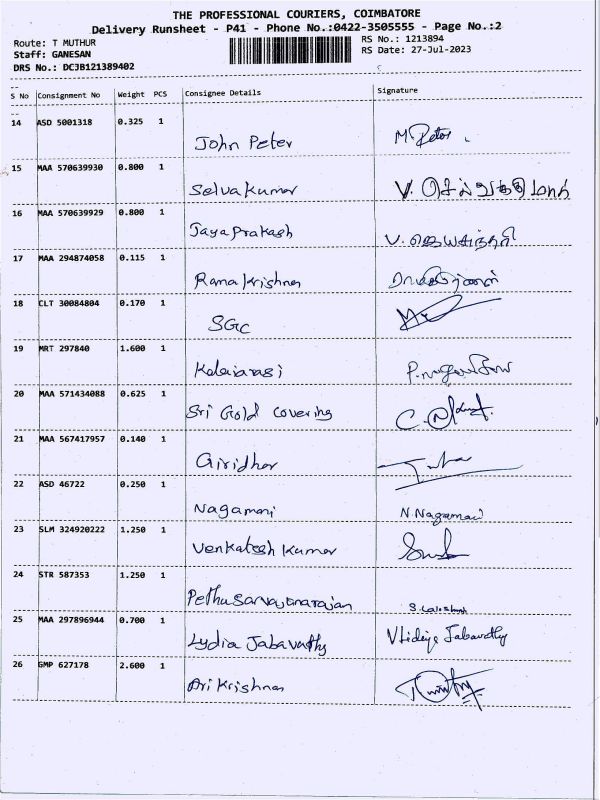 THE PROFESSIONAL COURIERS, COIMBATORE
Delivery Runsheet - P41 - Phone No.:0422-3505555 - Page No.:2
Route: T MUTHUR RS No.: 1213894
Staff: GANESAN RS Date: 27-Jul-2023
DRS No.: DCJB121389402
S No Consignment No Weight PCS Consignee Details Signature
14 ASD 5001318 0.325 1
John Peter M Peter
15 MAA 570639930 0.800 1
Selvakumar V. செல்வகுமார்
16 MAA 570639929 0.800 1
Jayaprakash V.
17 MAA 294874058 0.115 1
Rama Krishnan
18 CLT 30084804 0.170 1
SGC
19 MRT 297840 1.600 1
Kalaiarasi P.
20 MAA 571434088 0.625 1
Sri Gold Covering C.
21 MAA 567417957 0.140 1
Giridhar
22 ASD 46722 0.250 1
Nagamani N. Nagamani
23 SLM 324920222 1.250 1
Venkatesh Kumar
24 STR 587353 1.250 1
S. Lakshmi
25 MAA 297896944 0.700 1
Lydia Jabavathy
26 GMP 627178 2.600 1
Ari Krishnan